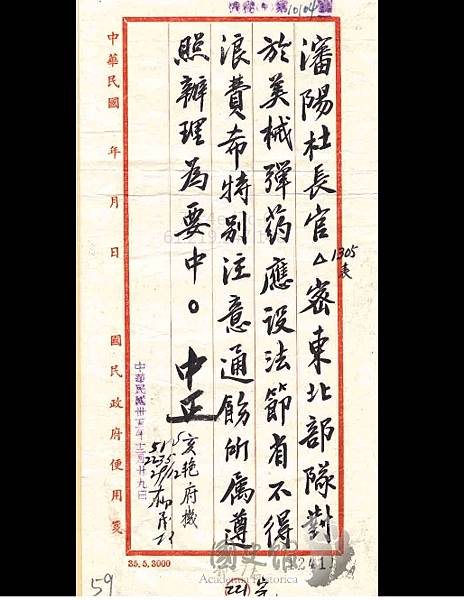 瀋陽杜長官△密東北部隊對
於美械彈药應设法節省不得
浪費希特别注意通飭所属遵
照辦理為要中。中正
亥艳府機
1305
表
10104
中華民國 年 月 日
國民政府便用箋
中華民國卅五年十二月廿九日
35.5.3000
國史館
Academia Historica
59